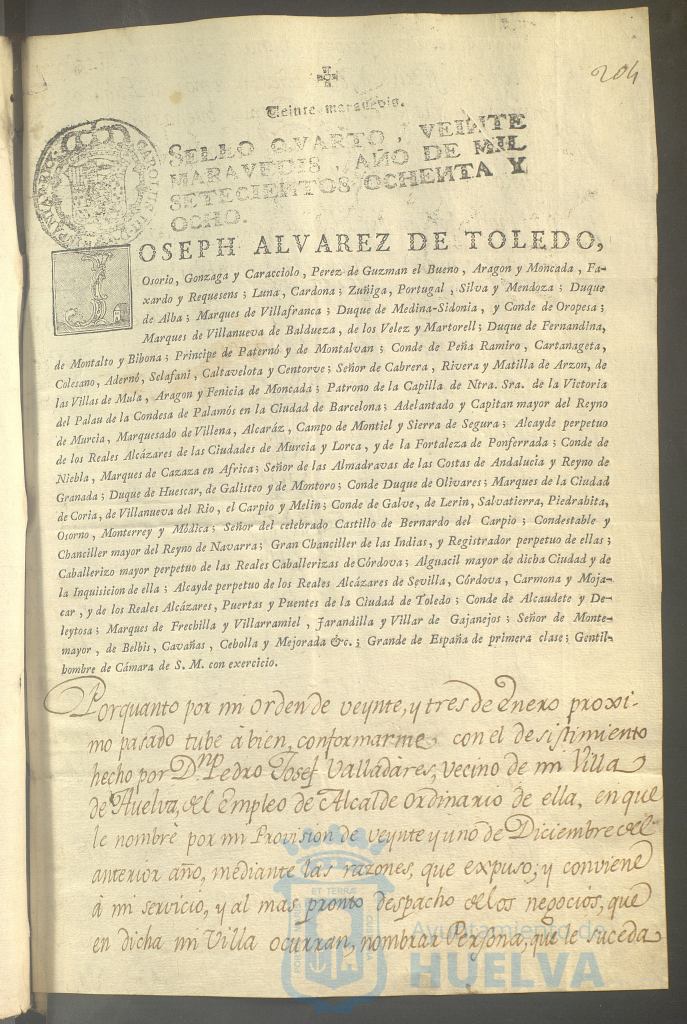 204
Veinte maravedis.
SELLO QVARTO, VEINTE
MARAVEDIS, AÑO DE MIL
SETECIENTOS OCHENTA Y
OCHO.
JOSEPH ALVAREZ DE TOLEDO,
Osorio, Gonzaga y Caracciolo, Perez de Guzman el Bueno, Aragon y Moncada, Fa-
xardo y Requesens; Luna, Cardona; Zuñiga, Portugal, Silva y Mendoza; Duque
de Alba; Marques de Villafranca; Duque de Medina-Sidonia, y Conde de Oropesa;
Marques de Villanueva de Baldueza, de los Velez y Martorell; Duque de Fernandina,
de Montalto y Bibona; Principe de Paternó y de Montalvan; Conde de Peña Ramiro, Cartanageta,
Colesano, Adernó, Selafani, Caltavelota y Centorve; Señor de Cabrera, Rivera y Matilla de Arzon, de
las Villas de Mula, Aragon y Fenicia de Moncada; Patrono de la Capilla de Ntra. Sra. de la Victoria
del Palau de la Condesa de Palamós en la Ciudad de Barcelona; Adelantado y Capitan mayor del Reyno
de Murcia, Marquesado de Villena, Alcaráz, Campo de Montiel y Sierra de Segura; Alcayde perpetuo
de los Reales Alcázares de las Ciudades de Murcia y Lorca, y de la Fortaleza de Ponferrada; Conde de
Niebla, Marques de Cazaza en Africa; Señor de las Almadravas de las Costas de Andalucía y Reyno de
Granada; Duque de Huescar, de Galisteo y de Montoro; Conde Duque de Olivares; Marques de la Ciudad
de Coria, de Villanueva del Rio, el Carpio y Melin; Conde de Galve, de Lerin, Salvatierra, Piedrahita,
Osorno, Monterrey y Módica; Señor del celebrado Castillo de Bernardo del Carpio; Condestable y
Chanciller mayor del Reyno de Navarra; Gran Chanciller de las Indias, y Registrador perpetuo de ellas;
Caballerizo mayor perpetuo de las Reales Caballerizas de Córdova; Alguacil mayor de dicha Ciudad y de
la Inquisicion de ella; Alcayde perpetuo de los Reales Alcázares de Sevilla, Córdova, Carmona y Moja-
car, y de los Reales Alcázares, Puertas y Puentes de la Ciudad de Toledo; Conde de Alcaudete y De-
leytosa; Marques de Frechilla y Villarramiel, Jarandilla y Villar de Gajanejos; Señor de Monte-
mayor, de Belbis, Cavañas, Cebolla y Mejorada &c.; Grande de España de primera clase; Gentil-
hombre de Cámara de S. M. con exercicio.
Porquanto por mi orden de veynte, y tres de Enero proxi-
mo pasado tube à bien, conformarme con el desistimiento
hecho por D.n Pedro Josef Valladares, vecino de mi Villa
de Huelva, del Empleo de Alcalde ordinario de ella, en que
le nombrè por mi Provision de veynte y uno de Diciembre del
anterior año, mediante las razones, que expuso; y conviene
à mi servicio, y al mas pronto despacho de los negocios, que
en dicha mi Villa ocurran, nombrar Persona, que le suceda
Ayuntamiento de
HUELVA